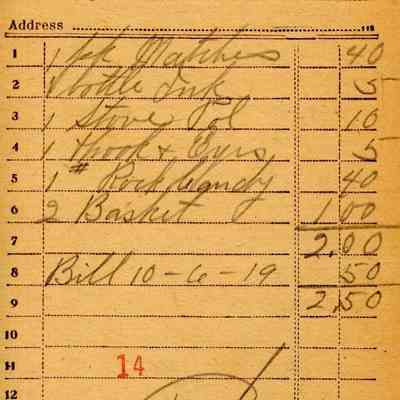 Address
1 1 pk Matches 40
2 1 bottle Ink 5
3 1 Stove Pol 10
4 1 Hook + Eyes 5
5 1# Rock Candy 40
6 2 Basket 1 00
7 2.00
8 Bill 10-6-19 50
9 2.50
10
11 14
12